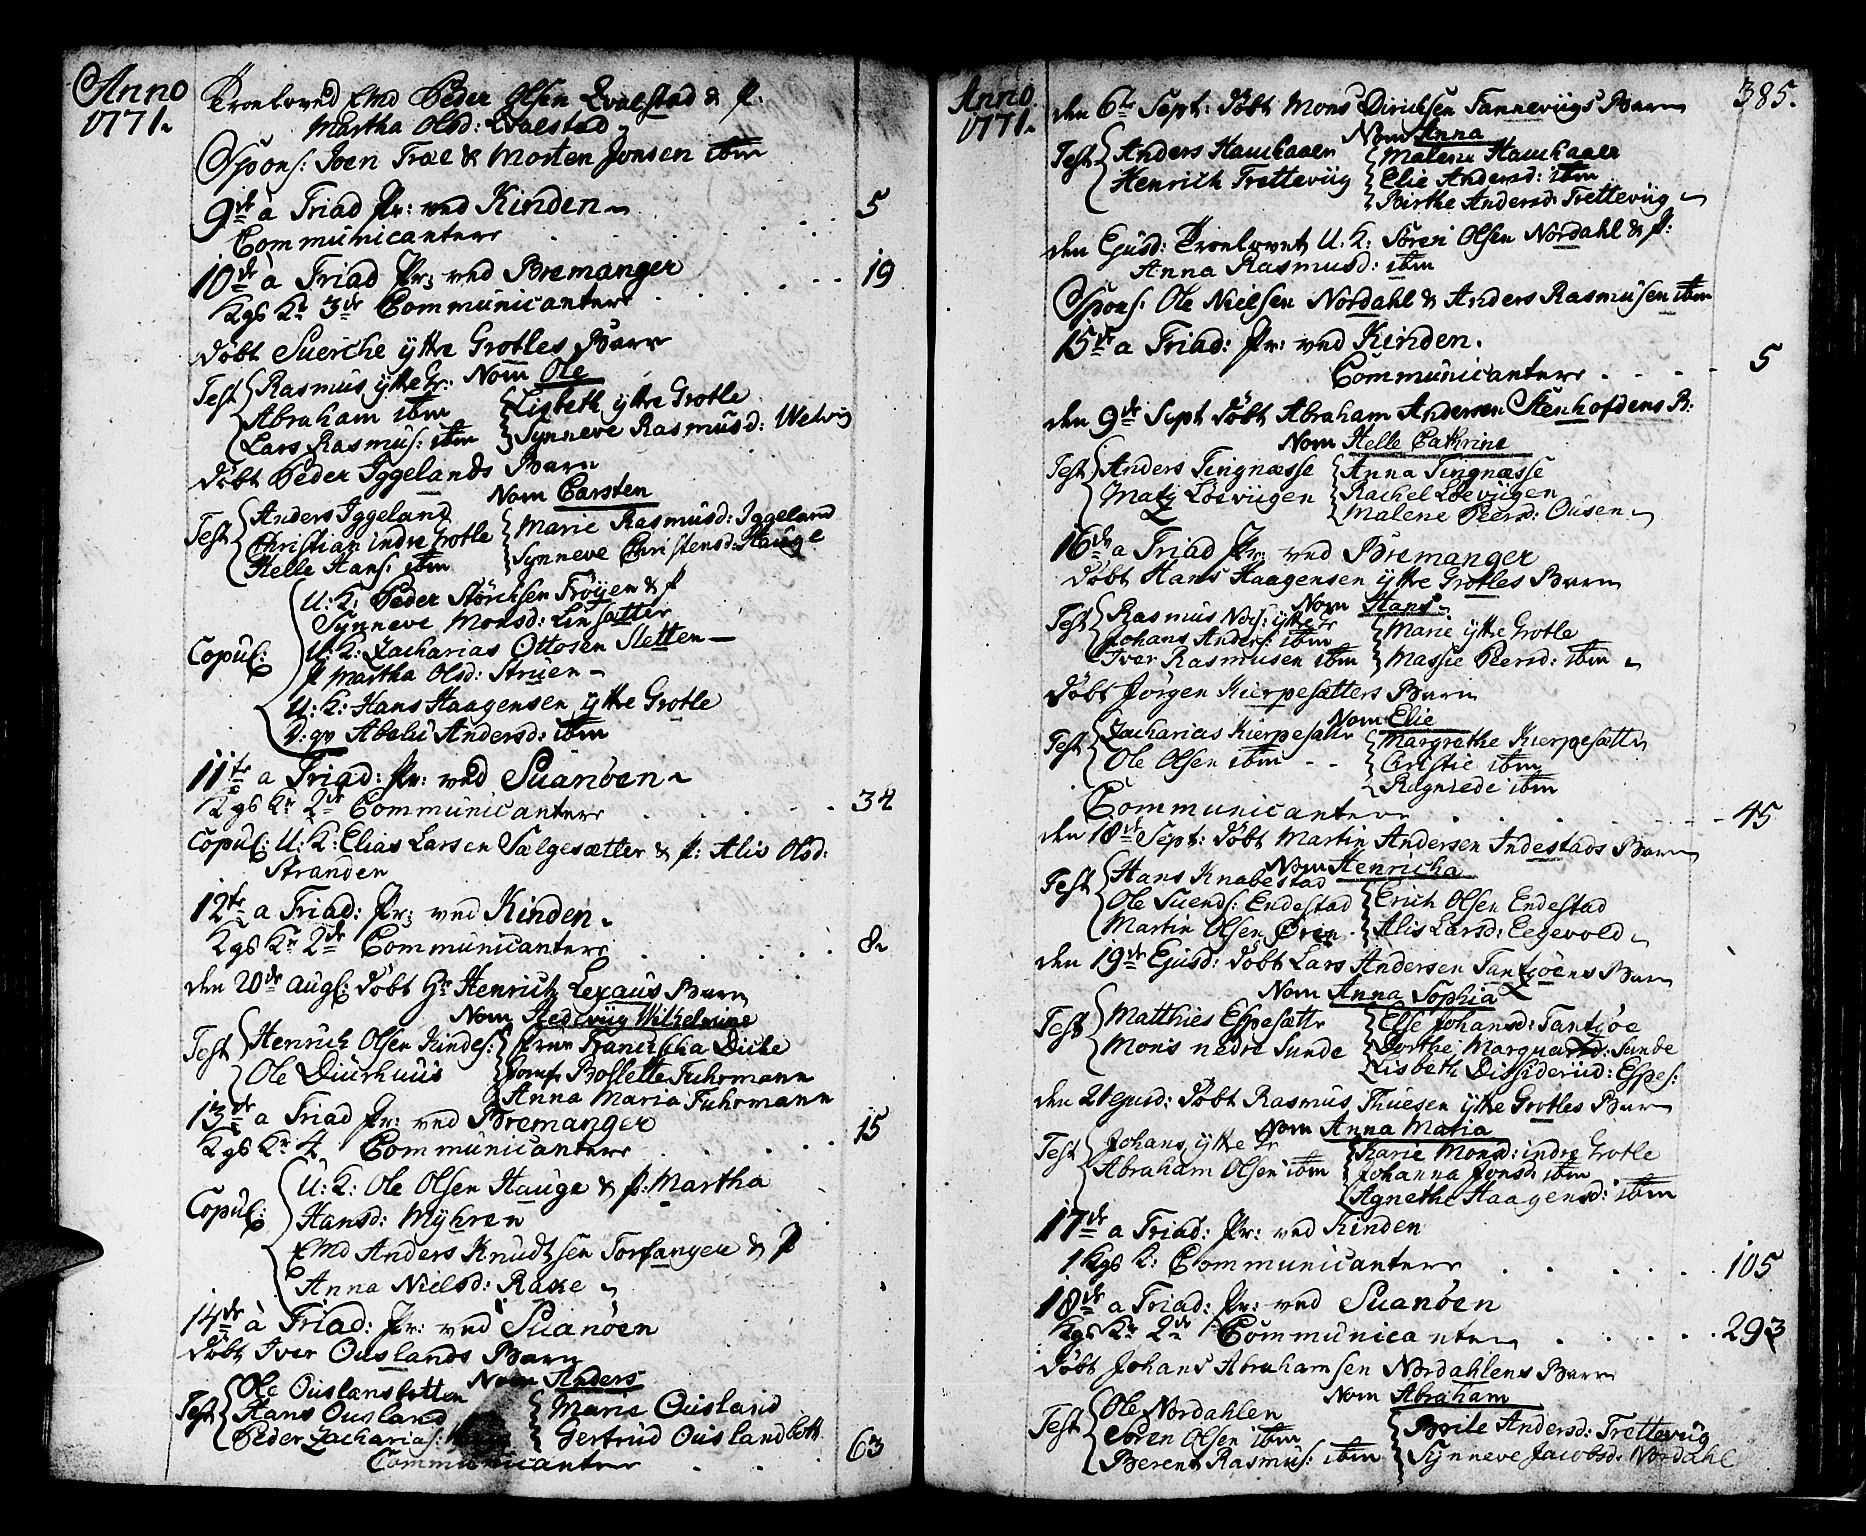 Anno
1771.
Troeloved Emd Peder Olsen Qvalstad & P.
Martha Olsd: Qvalestad
Spons: Joen Træe & Morten Jonsen ibm
9de à Triad Pr: ved Kinden
Communicantere . . . . 5
10de à Triad Pr: ved Bremanger
Kgs Kr 3de Communicantere . . . . 19
döbt Suerche ÿttre Grotles Barn
Nom Ole
Test Rasmus ÿttre Gr:
Abraham ibm
Lars Rasmus: ibm
Lisbeth ÿttre Grotle
Synneve Rasmusd: Welvig
döbt Peder Iggelands Barn
Nom Carsten
Test Anders Iggeland
Christian indre Grotle
Helle Hans: ibm
Marie Rasmusd: Iggeland
Synneve Christensd: Hauge
Copul: U: K: Peder Störchsen Fröÿen & P
Synneve Monsd: Linsætter
U: K: Zacharias Ottosen Sletten
P Martha Olsd: Struen
U: K: Hans Haagensen ÿttre Grotle
P: gv Abelu Andersd: ibm
11te a Triad: Pr: ved Suanöen
Kgs Kr 2de Communicantere . . . . 34
Copul: U: K: Elias Larsen Sælgesætter & P: Alis Olsd:
Stranden
12te a Triad: Pr: ved Kinden
Kgs Kr 2de Communicantere . . . . 8
den 20de Aug: döbt Hr Henrich Lexaus Barn
Nom Hedevig Wilhelmine
Test Henrich Olsen Kindes:
Ole Diurhuus
Frue Francisca Dicke
Jomf Boslette Fuhrmann
Anna Maria Fuhrmann
13de a Triad Pr: ved Bremanger
Kgs Kr 4 Communicantere . . . . 15
Copul: U: K: Ole Olsen Hauge & P: Martha
Hansd: Mÿhren
Emd Anders Knudtsen Torfangen & P
Anna Nielsd: Rake
14de à Triad: Pr: ved Suanöen
döbt Iver Ouslands Barn
Nom Anders
Test Ole Ouslansbotten
Hans Ousland
Peder Zacharias:
Marie Ousland
Gertrud Ouslandbott
Communicantere . . . . 63
Anno
1771.
385.
den 6te Sept: döbt Mons Dirichsen Tanneviigs Barn
Nom Anna
Test Anders Hamhaaen
Henrich Trettevüg
Malene Hamhaaen
Elie Andersd: ibm
Birthe Andersd: Trettevüg
den Ejusd: Troelovet U: K: Sören Olsen Nordahl & P:
Anna Rasmusd: ibm
Spons: Ole Nielsen Nordahl & Anders Rasmusen ibm
15de a Triad: Pr: ved Kinden.
Communicantere . . . . 5
den 9de Sept döbt Abraham Andersen Stenhofdens B:
Nom Helle Cathrine
Test Anders Tingnæsse
Matz Löevügen
Anna Tingnæsse
Rachel Löevügen
Malene Peersd: Ousen
16de a Triad Pr: ved Bremanger
döbt Hans Haagensen ÿttre Grotles Barn
Nom Hans
Test Rasmus Nels: ÿttre Gr
Johans Anders: ibm
Iver Rasmusen ibm
Marie ÿttre Grotle
Massie Peersd: ibm
döbt Jörgen Kierpesætters Barn
Nom Elie
Test Zacharias Kierpesætr
Ole Olsen ibm
Margrethe Kierpesætter
Cristie ibm
Ragnede ibm
Communicantere . . . . 45
den 18de Sept: döbt Martin Andersen Indestads Barn
Nom Henricha
Test Hans Knabestad
Ole Suends: Endestad
Martin Olsen Ören
Erich Olsen Endestad
Alis Larsd: Eegevold
den 19de Ejusd: döbt Lars Andersen Tantzöens Barn
Nom Anna Sophia
Test Matthies Espesætr
Mons nedre Sunde
Else Johansd: Tantzöe
Dorthe Marquardsd: Sunde
Lisbeth Dissiderüd: Espes:
den 21 ejusd: döbt Rasmus Thuesen ÿttre Grotles Barn
Nom Anna Maria
Test Johans ÿttre Gr
Abraham Olsen ibm
Karie Monsd: indre Grotle
Johanna Jonsd: ibm
Agnethe Haagensd: ibm
17de a Triad: Pr: ved Kinden
1 Kgs K: Communicantere . . . . 105
18de a Triad: Pr: ved Suanöen
Kgs Kr 2de Communicantere . . . . 293
döbt Johans Abrahamsen Nordahlens Barn
Nom Abraham
Test Ole Nordahlen
Sören Olsen ibm
Berent Rasmus: ibm
Borile Andersd: Trettevüg
Sÿnneve Jacobsd: Nordahl